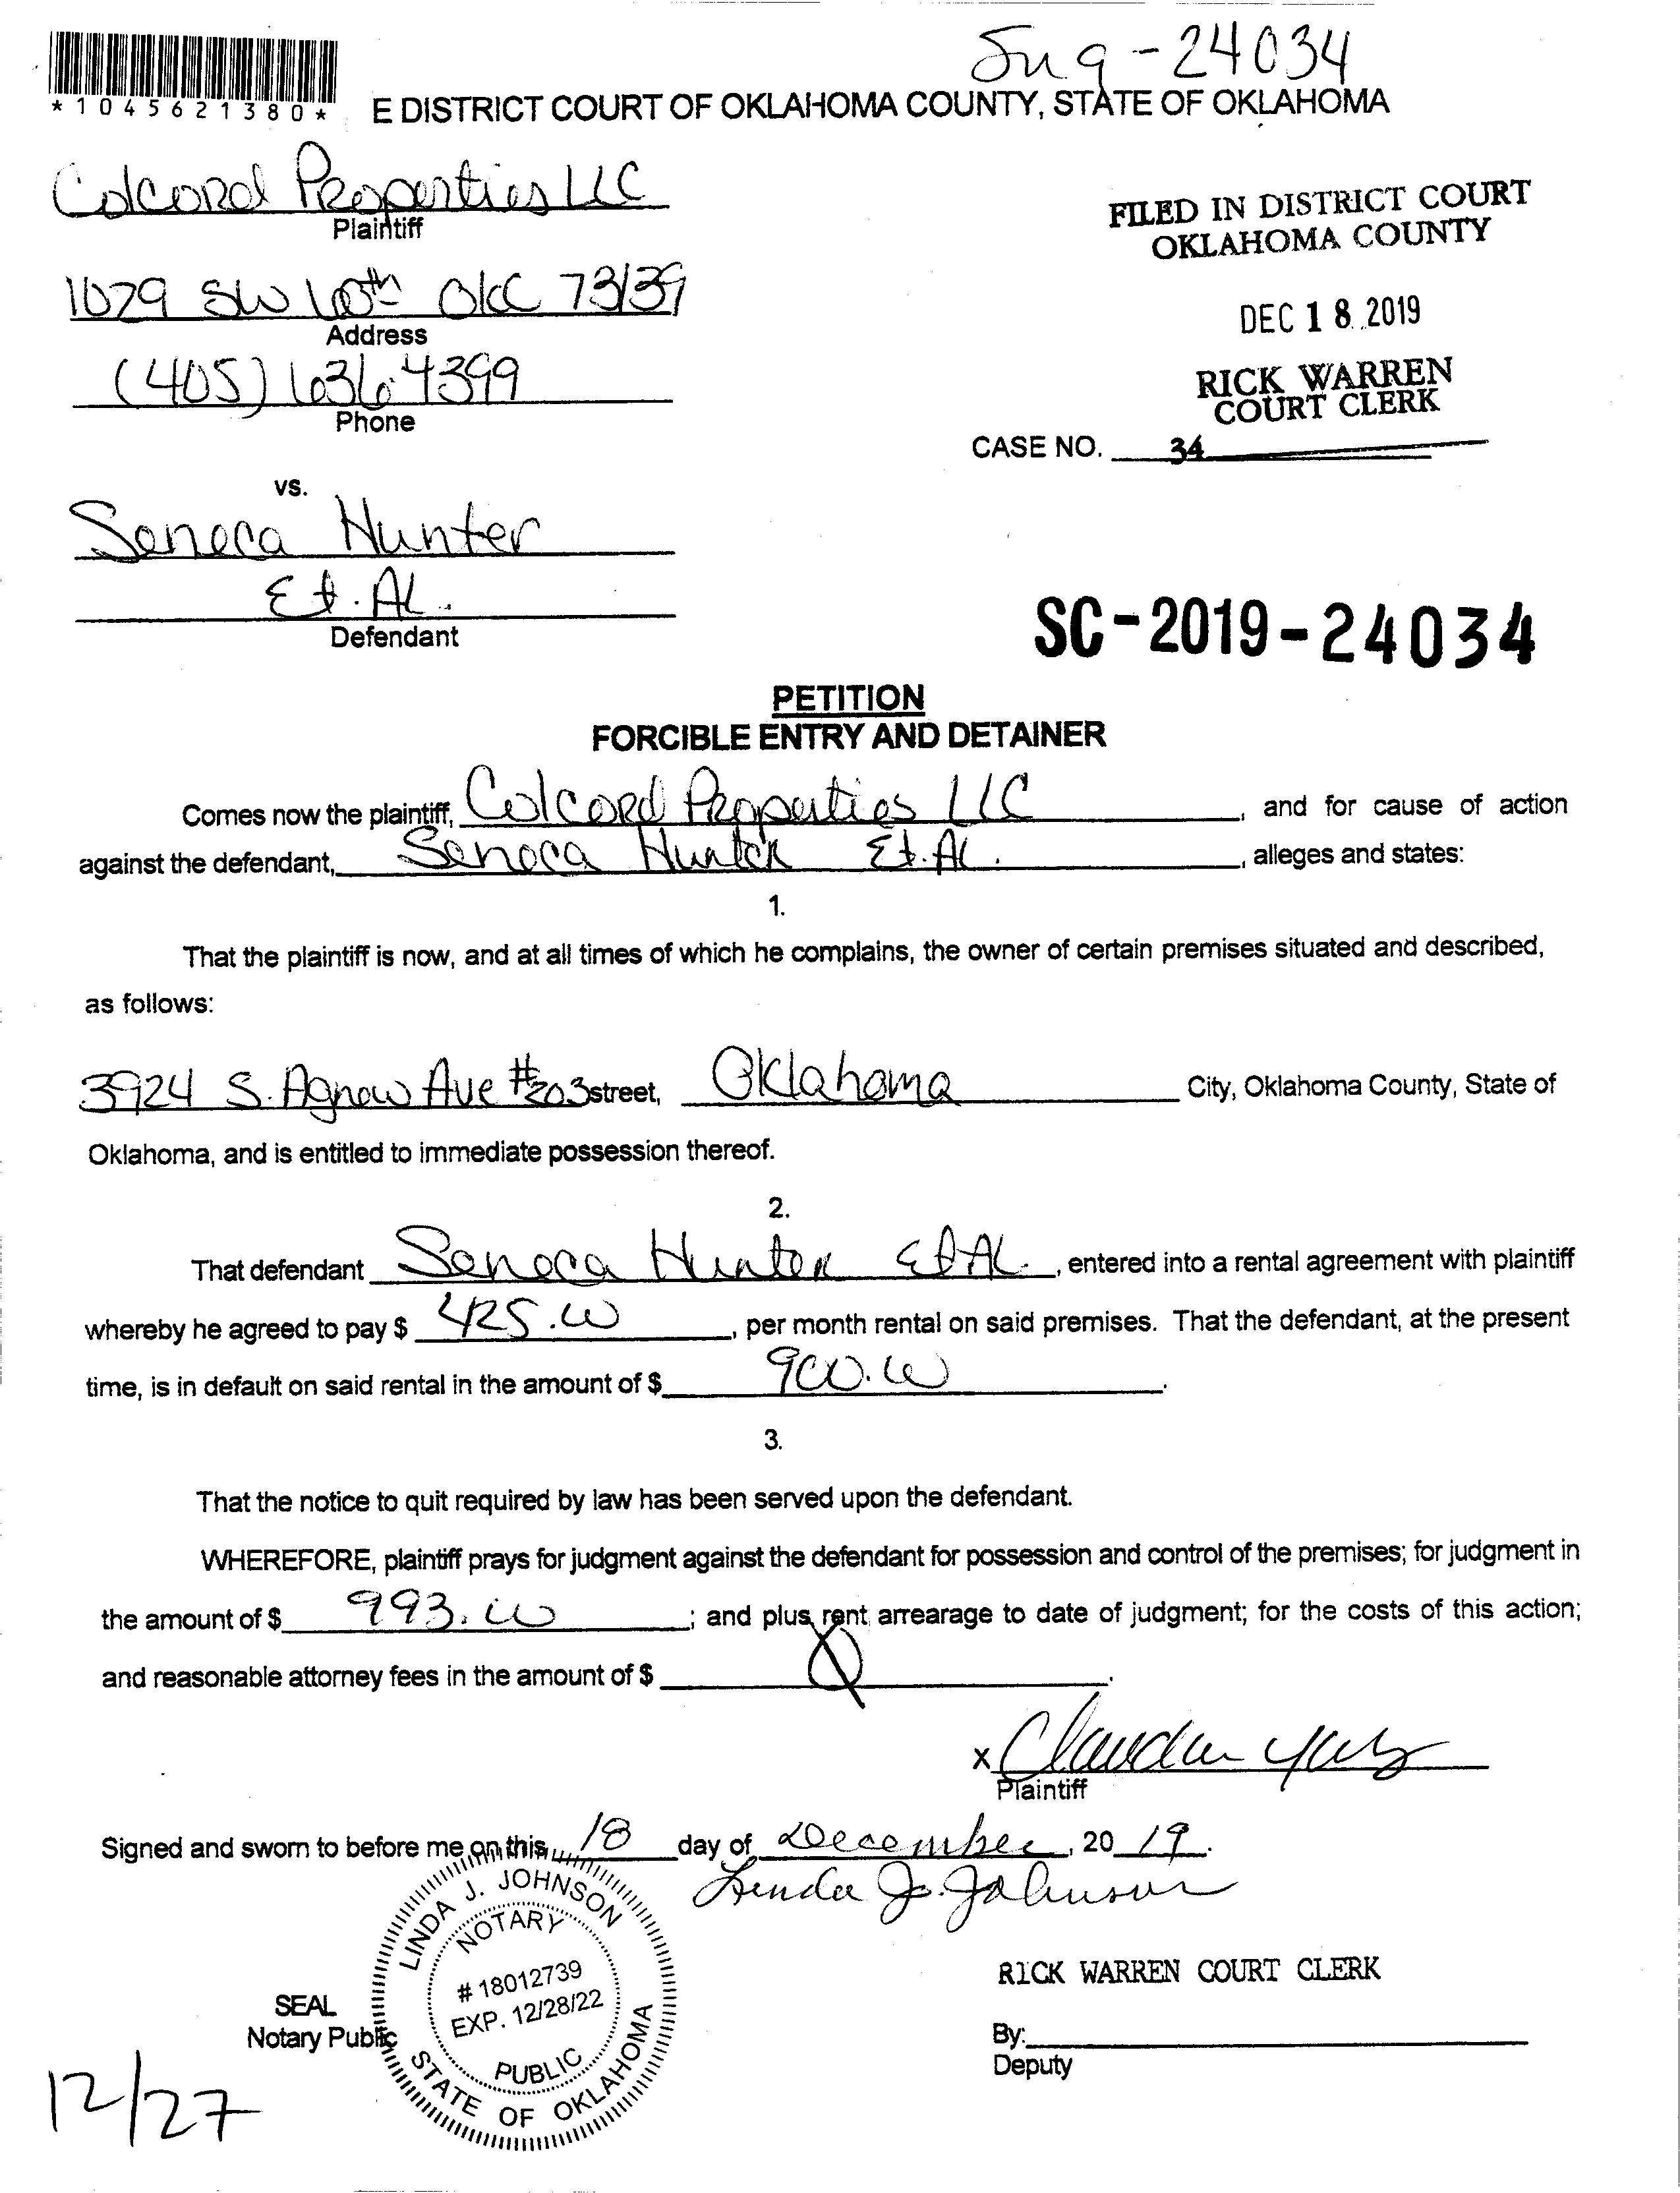 Jug-24034
*1045621380*
E DISTRICT COURT OF OKLAHOMA COUNTY, STATE OF OKLAHOMA
Colcord Properties LLC
Plaintiff
FILED IN DISTRICT COURT
OKLAHOMA COUNTY
1029 SW OKC 73139
Address
DEC 18 2019
(405) 636 4399
Phone
RICK WARREN
COURT CLERK
CASE NO. 34
vs.
Seneca Hunter
Et. Al.
Defendant
SC-2019-24034
PETITION
FORCIBLE ENTRY AND DETAINER
Comes now the plaintiff, Colcord Properties LLC, and for cause of action
against the defendant, Seneca Hunter Et. Al., alleges and states:
1.
That the plaintiff is now, and at all times of which he complains, the owner of certain premises situated and described,
as follows:
3924 S. Agnew Ave #203 street, Oklahoma City, Oklahoma County, State of
Oklahoma, and is entitled to immediate possession thereof.
2.
That defendant Seneca Hunter Et Al., entered into a rental agreement with plaintiff
whereby he agreed to pay $ 425.00, per month rental on said premises. That the defendant, at the present
time, is in default on said rental in the amount of $ 900.00.
3.
That the notice to quit required by law has been served upon the defendant.
WHEREFORE, plaintiff prays for judgment against the defendant for possession and control of the premises; for judgment in
the amount of $ 993.00; and plus rent arrearage to date of judgment; for the costs of this action;
and reasonable attorney fees in the amount of $ Ø.
x Claudia
Plaintiff
Signed and sworn to before me on this 18 day of December, 2019.
Linda J. Johnson
LINDA J. JOHNSON
NOTARY
# 18012739
EXP. 12/28/22
PUBLIC
STATE OF OKLAHOMA
RICK WARREN COURT CLERK
SEAL
Notary Public
By:
Deputy
12/27